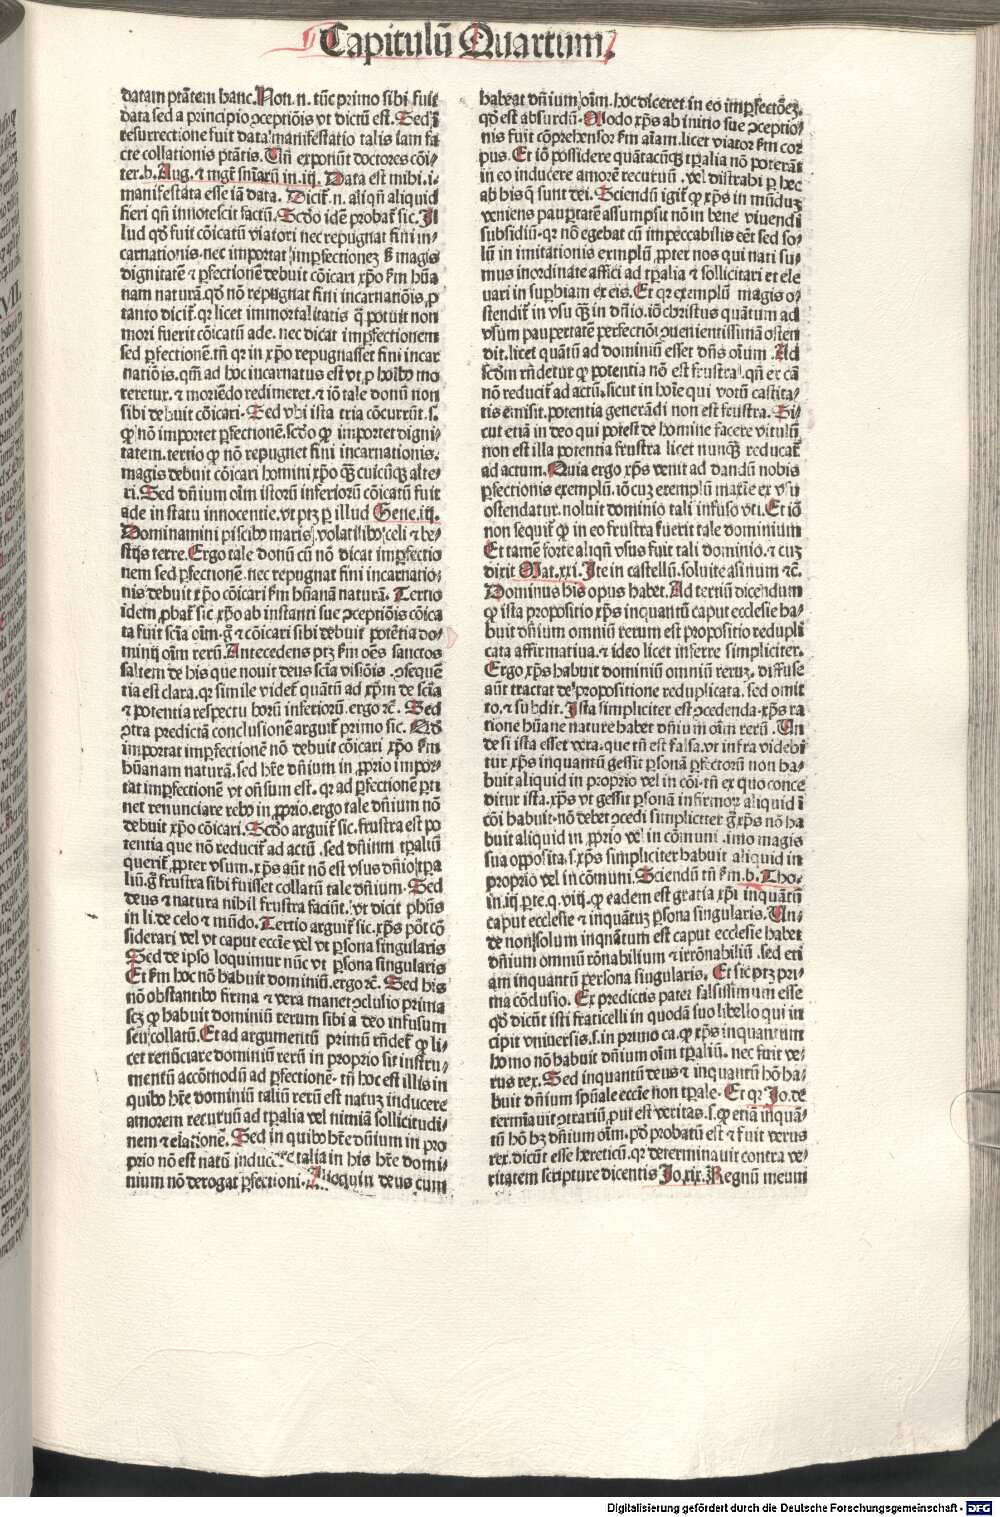 Capitulū Quartum.
datam ptātem hanc. Non .n. tūc primo sibi fuit
data sed a principio ɔceptiōis vt dictū est. Sed ī
resurrectione fuit data manifestatio talis iam fa
cte collationis ptātis. Vñ exponūt doctores cōi/
ter. b. Aug. ⁊ mgr̄ sniarū in. iij. Data est mihi .i.
manifestata esse iā data. Dicit̄ .n. aliqñ aliquid
fieri qñ innotescit factū. Scďo idē probat̄ sic. Il
lud qđ fuit cōicatū viatori nec repugnat fini in/
carnationis. nec importat imperfectionez sꝫ magis
dignitatē ⁊ pfectionē debuit cōicari xp̄o fm hūa
nam naturā. qđ nō repugnat fini incarnatiōis. p
tanto dicit̄. qr licet immortalitatis q̄ potuit non
mori fuerit cōicatū ade. nec dicat imperfectionem
sed pfectionē. tñ qr in xp̄o repugnasset fini incar
natiōis. qm̄ ad hoc incarnatus est vt p hoīb9 mo
reretur. ⁊ moriēdo redimeret. ⁊ iō tale donū non
sibi debuit cōicari. Sed vbi ista tria cōcurrūt .s.
ꝙ nō importet pfectionē. scďo ꝙ importet digni/
tatem. tertio ꝙ nō repugnet fini incarnationis.
magis debuit cōicari homini xp̄o q̄ꝫ cuicūqꝫ alte/
ri. Sed dñium oīm istorū inferiorū cōicatū fuit
ade in statu innocentie. vt ptꝫ p illud Gene. iij.
Dominamini piscib9 maris. volatilib9 celi ⁊ be/
stijs terre. Ergo tale donū cū nō dicat imperfectio
nem sed pfectionē. nec repugnat fini incarnatio/
nis debuit xp̄o cōicari fm hūanā naturā. Tertio
idem pbat̄ sic. xp̄o ab instanti sue ɔceptiōis cōica
ta fuit scia oīm. g̃ ⁊ cōicari sibi debuit potētia do/
minij oīm rerū. Antecedens ptꝫ fm oēs sanctos
saltem de his que nouit deus scia visiōis. ɔsequē
tia est clara. qr simile videt̄ quātū ad xp̄m de scia
⁊ potentia respectu horū inferiorū. ergo ⁊c̄. Sed
ɔtra predictā conclusionē arguit̄ primo sic. Qđ
importat imperfectionē nō debuit cōicari xp̄o fm
hūanam naturā. sed hr̄e dñium in pprio impor/
tat imperfectionē vt oñsum est. qr ad pfectionē pti
net renunciare reb9 in pprio. ergo tale dñium nō
debuit xp̄o cōicari. Scďo arguit̄ sic. frustra est po
tentia que nō reducit̄ ad actū. sed dñium tpaliū
querit̄ ppter vsum. xp̄s aūt nō est vsus dñio tpa
liū. g̃ frustra sibi fuisset collatū tale dñium. Sed
deus ⁊ natura nihil frustra faciūt. vt dicit phūs
in li. de celo ⁊ mūdo. Tertio arguit̄ sic. xp̄s pōt cō
siderari vel vt caput eccīe vel vt psona singularis
Sed de ipso loquimur nūc vt psona singularis
Et fm hoc nō habuit dominiū. ergo ⁊c̄. Sed his
nō obstantib9 firma ⁊ vera manet ɔclusio prima
scꝫ ꝙ habuit dominiū rerum sibi a deo infusum
seu collatū. Et ad argumentū primū rñdet̄ ꝙ li/
cet renūciare dominiū rerū in proprio sit instru/
mentū accōmodū ad pfectionē. tñ hoc est illis in
quib9 hr̄e dominiū taliū rerū est natuꝫ inducere
amorem recuruū ad tpalia vel nimiā sollicitudi/
nem ⁊ elationē. Sed in quib9 hr̄e dñium in pro
prio nō est natū inducere talia in his hr̄e domi/
nium nō derogat pfectioni. Alioquin deus cum
habeat dñium oīm. hoc diceret in eo imperfectōez.
qđ est absurdū. Modo xp̄s ab initio sue ɔceptio/
nis fuit cōprehensor fm aīam. licet viator fm cor
pus. Et iō possidere quātacūqꝫ tpalia nō poterāt
in eo inducere amorē recuruū. vel distrahi p hec
ab his q̄ sunt dei. Sciendū igit̄ ꝙ xp̄s in mūduꝫ
veniens paupertatē assumpsit nō in bene viuendi
subsidiū. qr nō egebat cū impeccabilis eēt sed so/
lū in imitationis exemplū ppter nos qui nati su/
mus inordinate affici ad tpalia ⁊ sollicitari et ele
uari in supbiam ex eis. Et qr exemplū magis o/
stendit̄ in vsu q̄ꝫ in dñio. iō christus quātum ad
vsum paupertatē perfectiōi ɔuenientissimā osten
dit. licet quātū ad dominiū esset dñs oīum. Ad
scďm rñdetur ꝙ potentia nō est frustra. qñ ex cā
nō reducit̄ ad actū. sicut in hoīe qui votū castita/
tis emisit. potentia generādi non est frustra. Si/
cut etiā in deo qui potest de homine facere vitulū
non est illa potentia frustra licet nunq̄ꝫ reducat̄
ad actum. Quia ergo xp̄s venit ad dandū nobis
pfectionis exemplū. iō cuꝫ exemplū maxīe ex vsu
ostendatur. noluit dominio tali infuso vti. Et iō
non sequit̄ ꝙ in eo frustra fuerit tale dominium
Et tamē forte aliqñ vsus fuit tali dominio. ⁊ cuꝫ
dixit Mat. xxi. Ite in castellū. soluite asinum ⁊c̄.
Dominus his opus habet. Ad tertiū dicendum
ꝙ ista propositio xp̄s inquantū caput ecclesie ha/
buit dñium omniū rerum est propositio redupli
cata affirmatiua. ⁊ ideo licet inferre simpliciter.
Ergo xp̄s habuit dominiū omniū reruꝫ. diffuse
aūt tractat de propositione reduplicata. sed omit
to. ⁊ subdit. Ista simpliciter est ɔcedenda. xp̄s ra
tione hūane nature habet dñium oīm rerū. Vn
de si ista esset vera. que tñ est falsa. vt infra videbi
tur xp̄s inquantū gessit psonā pfectorū non ha/
buit aliquid in proprio vel in cōi. tñ ex quo conce
ditur ista. xp̄s vt gessit psonā infirmoꝝ aliquid ī
cōi habuit. nō debet ɔcedi simpliciter g̃ xp̄s nō ha
buit aliquid in pprio vel in cōmuni. imo magis
sua opposita .s. xp̄s simpliciter habuit aliquid in
proprio vel in cōmuni. Sciendū tñ fm. b. Tho.
in. iij. pte. q. viij. ꝙ eadem est gratia xp̄i inquātū
caput ecclesie ⁊ inquātuꝫ psona singularis. Vn/
de non solum inquātum est caput ecclesie habet
dñium omniū rōnabilium ⁊ irrōnabiliū. sed eti
am inquantū persona singularis. Et sic ptꝫ pri/
ma cōclusio. Ex predictis patet falsissimum esse
qđ dicūt isti fraticelli in quodā suo libello qui in
cipit vniuersis .s. in primo ca. ꝙ xp̄s inquantum
homo nō habuit dñium oīm tpaliū. nec fuit ve/
rus rex. Sed inquantū deus ⁊ inquantū hō ha/
buit dñium spūale eccīe non tpale. Et qr Jo. de
termīauit ɔtrariū, put est veritas .s. ꝙ etiā inquā/
tū hō hꝫ dñium oīm. pđ probatū est ⁊ fuit verus
rex. dicūt esse hereticū. qr determinauit contra ve/
ritatem scripture dicentis Jo. xix. Regnū meum
Digitalisierung gefördert durch die Deutsche Forschungsgemeinschaft - DFG